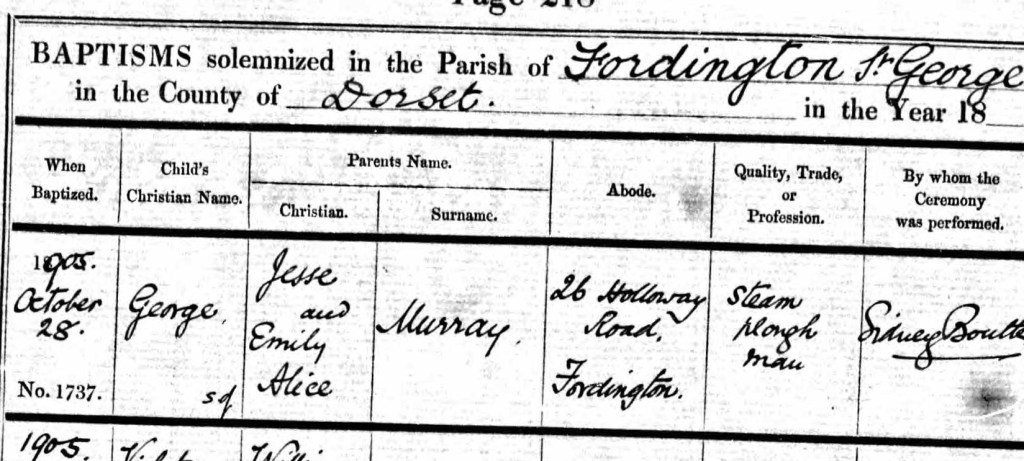 Page 218
BAPTISMS solemnized in the Parish of Fordington St George
in the County of Dorset. in the Year 18
When Baptized.
Child's Christian Name.
Parents Name.
Christian.
Surname.
Abode.
Quality, Trade, or Profession.
By whom the Ceremony was performed.
1905.
October
28.
No. 1737.
George.
Jesse
and
Emily
Alice
Murray.
26 Holloway
Road.
Fordington.
steam
plough
man
Sidney Boulte
1905.